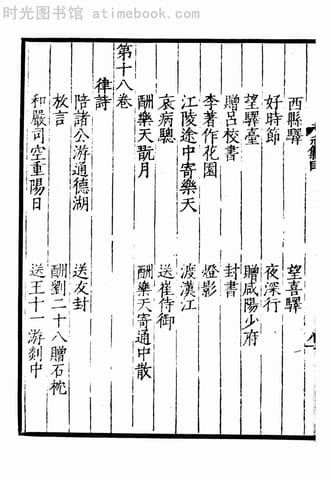 时光图书馆 - www.atimebook.com
西縣驛 望喜驛
好時節 夜深行
望驛臺 贈咸陽少府
贈呂校書 封書
李著作花園 燈影
江陵途中寄樂天 渡漢江
哀病驄 送崔侍御
酬樂天翫月 酬樂天寄通中散
第十八卷
律詩
陪諸公游通德湖 送友封
放言 酬劉二十八贈石枕
和嚴司空重陽日 送王十一游剡中